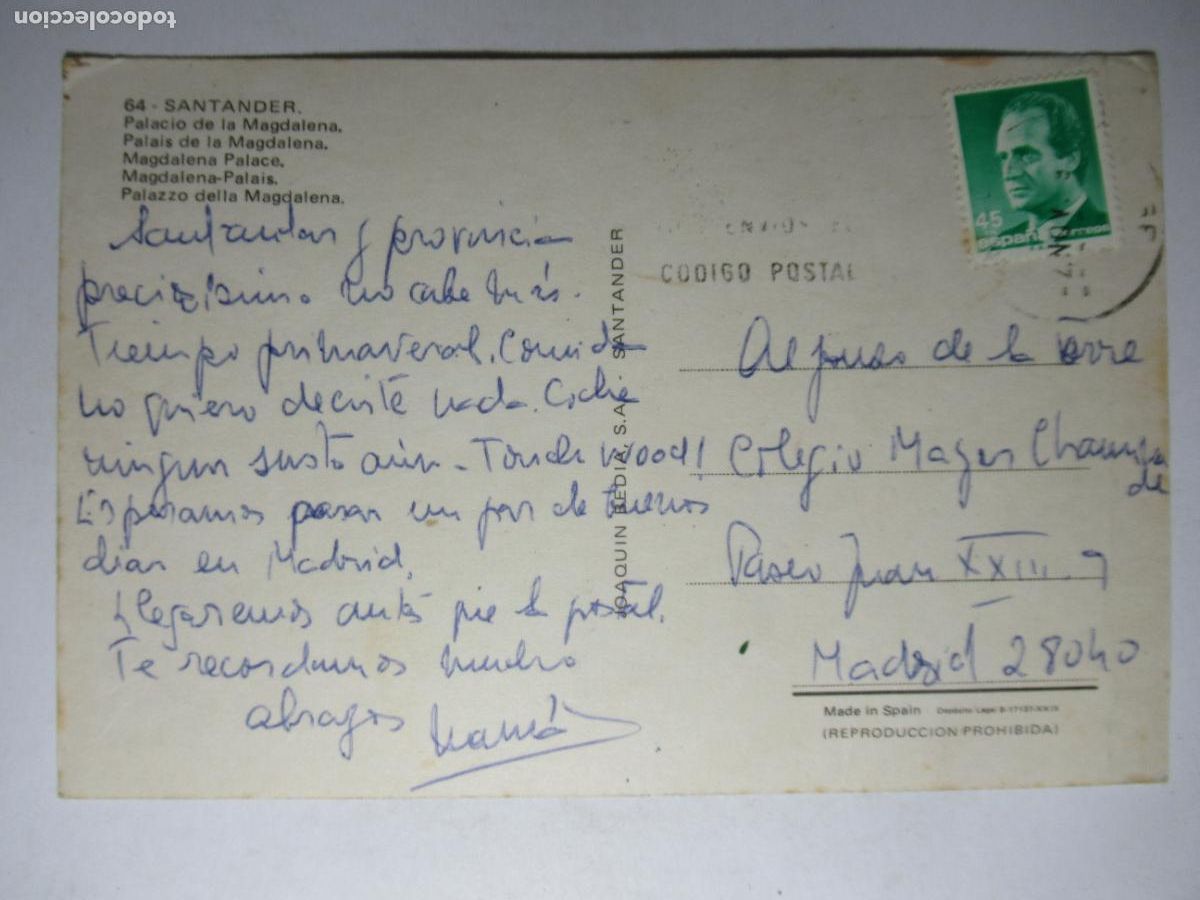 todocoleccion
64 - SANTANDER.
Palacio de la Magdalena.
Palais de la Magdalena.
Magdalena Palace.
Magdalena-Palais.
Palazzo della Magdalena.
Santander y provincia
preciosísimo. No cabe más.
Tiempo primaveral. Comida
no quiero decirte nada. Coche
ningun susto aún. Touch wood!
Esperamos pasar un par de buenos
dias en Madrid.
Llegaremos antes que la postal.
Te recordamos mucho
abrazos Mamá
JOAQUIN BEDIA, S.A. SANTANDER
CODIGO POSTAL
4 NOV
45
españa
correos
Alfonso de la Torre
Colegio Mayor
de
Paseo Juan XXIII. 9
Madrid 28040
Made in Spain
(REPRODUCCION PROHIBIDA)